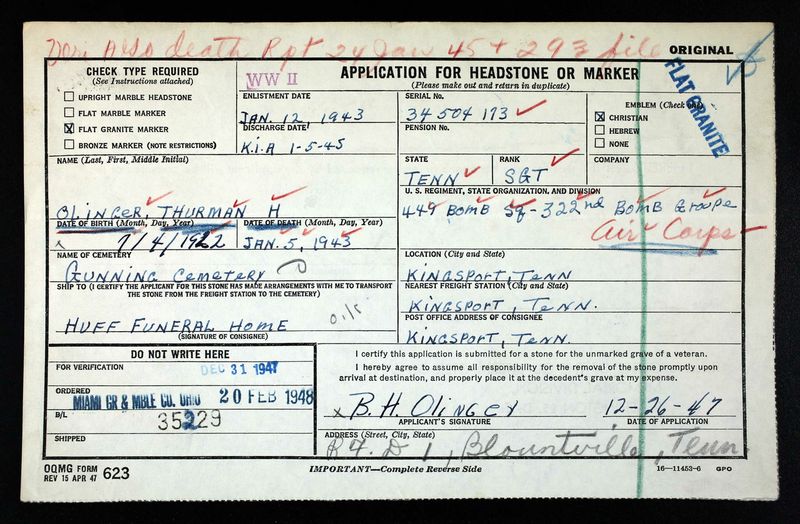 Also death Rpt 24 Jan 45 + 293 file
ORIGINAL
CHECK TYPE REQUIRED
(See Instructions attached)
UPRIGHT MARBLE HEADSTONE
FLAT MARBLE MARKER
X FLAT GRANITE MARKER
BRONZE MARKER (NOTE RESTRICTIONS)
WW II
ENLISTMENT DATE
JAN. 12, 1943
DISCHARGE DATE
K.I.A 1-5-45
APPLICATION FOR HEADSTONE OR MARKER
(Please make out and return in duplicate)
SERIAL No.
34504173
PENSION No.
EMBLEM (Check one)
X CHRISTIAN
HEBREW
NONE
FLAT GRANITE
STATE
TENN
RANK
SGT
COMPANY
NAME (Last, First, Middle Initial)
OLINGER, THURMAN H
U. S. REGIMENT, STATE ORGANIZATION, AND DIVISION
449 BOMB Sq - 322nd BOMB Groupe
Air Corps
DATE OF BIRTH (Month, Day, Year)
x 7/4/1922
DATE OF DEATH (Month, Day, Year)
JAN. 5, 1943
NAME OF CEMETERY
GUNNING CEMETERY
LOCATION (City and State)
KINGSPORT, TENN
SHIP TO (I CERTIFY THE APPLICANT FOR THIS STONE HAS MADE ARRANGEMENTS WITH ME TO TRANSPORT
THE STONE FROM THE FREIGHT STATION TO THE CEMETERY)
HUFF FUNERAL HOME
(SIGNATURE OF CONSIGNEE)
NEAREST FREIGHT STATION (City and State)
KINGSPORT, TENN.
POST OFFICE ADDRESS OF CONSIGNEE
KINGSPORT, TENN.
DO NOT WRITE HERE
FOR VERIFICATION
DEC 31 1947
ORDERED
MIAMI GR & MBLE CO. OHIO 20 FEB 1948
B/L
35229
SHIPPED
I certify this application is submitted for a stone for the unmarked grave of a veteran.
I hereby agree to assume all responsibility for the removal of the stone promptly upon
arrival at destination, and properly place it at the decedent's grave at my expense.
x B. H. Olinger 12-26-47
APPLICANT'S SIGNATURE
DATE OF APPLICATION
ADDRESS (Street, City, State)
R.F.D 1, Blountville, Tenn
OQMG FORM
REV 15 APR 47
623
IMPORTANT—Complete Reverse Side
16—11453-6 GPO